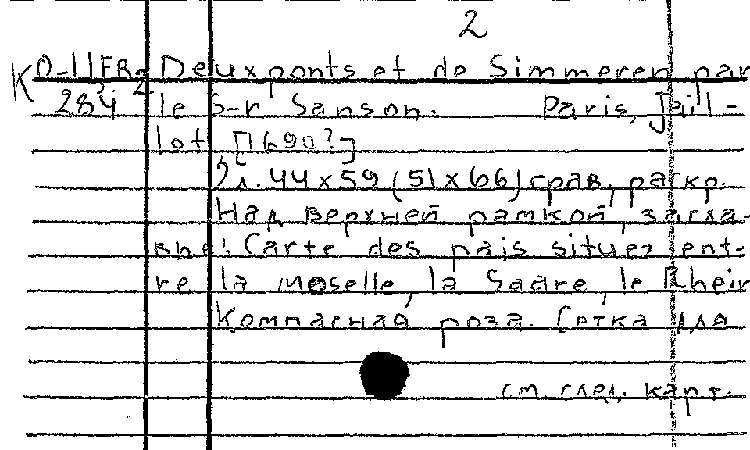 2
K O-IIFR-2 Deuxponts et de Simmeren par
284 le S-r Sanson. Paris, Jail-
lot [1690?]
44x59 (51x66) грав, раскр.
Над верхней рамкой, загла-
вие: Carte des pais situez ent-
re la Moselle, la Saare, le Rhein
Компасная роза. Сетка для
см. след. карт.